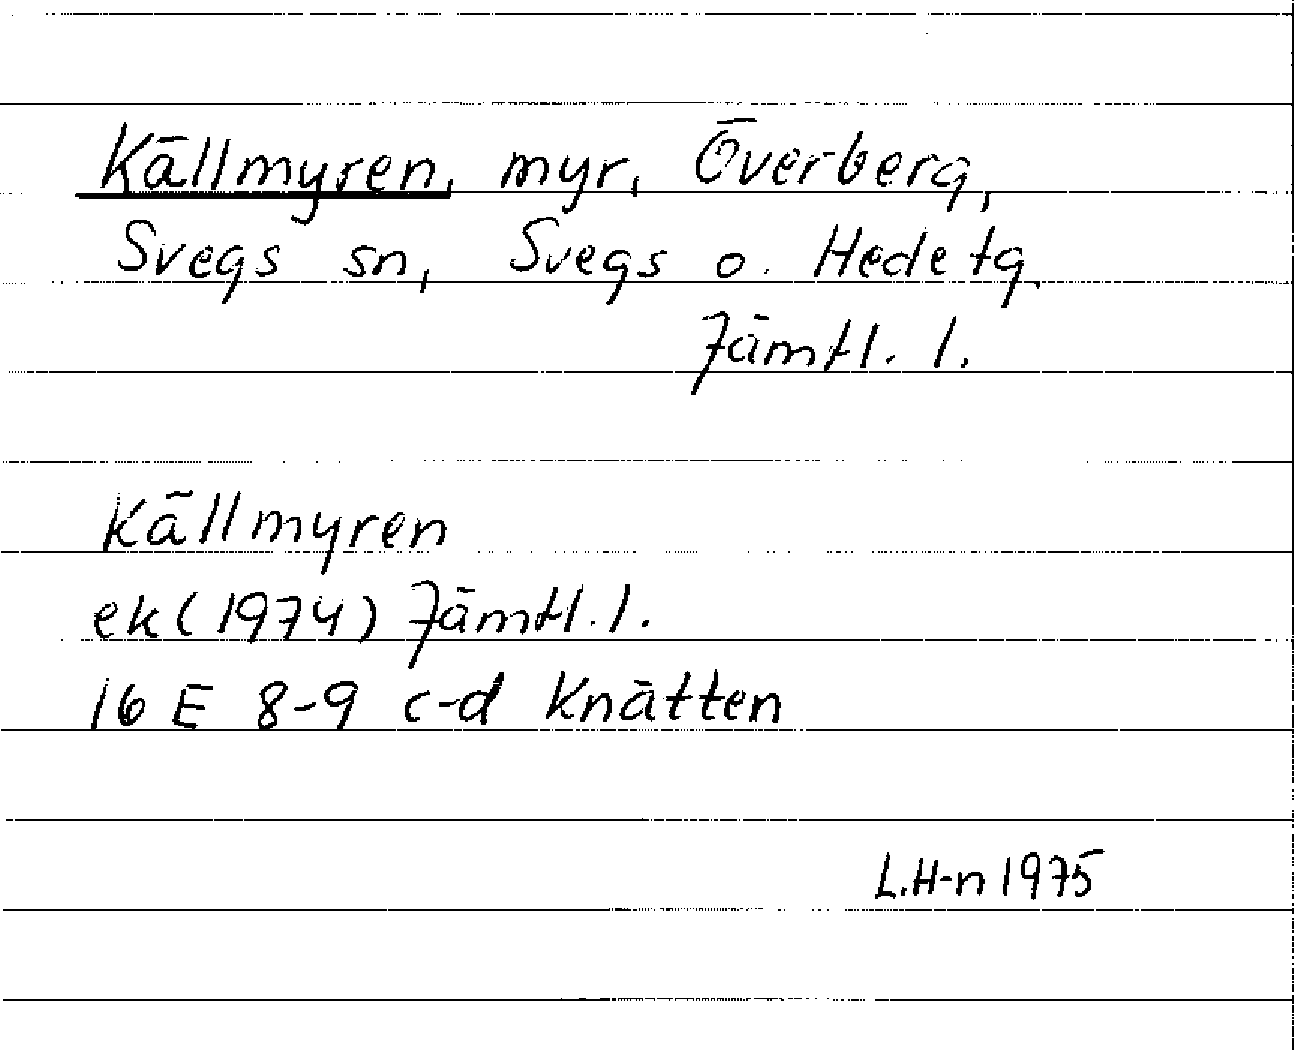 Källmyren, myr, Överberg,
Svegs sn, Svegs o. Hede tg.
Jämtl. l.
Källmyren
ek (1974) Jämtl. l.
16 E 8-9 c-d Knätten
L.H-n 1975